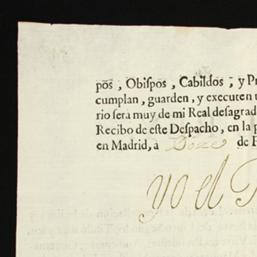 pos, Obispos, Cabildos, y Pr
cumplan, guarden, y executen
rio sera muy de mi Real desagrad
Recibo de este Despacho, en la p
en Madrid, à Doze de F
yo el